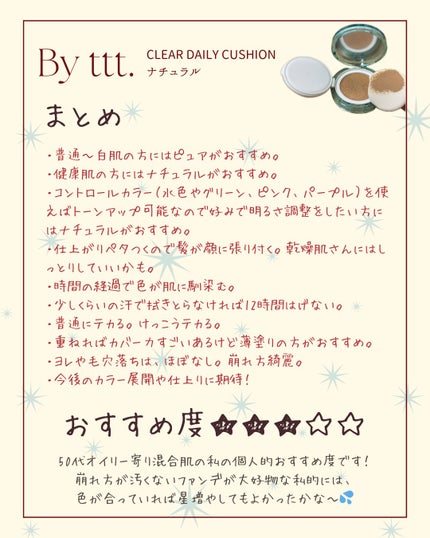 By ttt. CLEAR DAILY CUSHION
ナチュラル
まとめ
・普通〜白肌の方にはピュアがおすすめ。
・健康肌の方にはナチュラルがおすすめ。
・コントロールカラー(水色やグリーン、ピンク、パープル)を使
えばトーンアップ可能なので好みで明るさ調整をしたい方に
はナチュラルがおすすめ。
・仕上がりペタつくので髪が顔に張り付く。乾燥肌さんにはし
っとりしていいかも。
・時間の経過で色が肌に馴染む。
・少しくらいの汗で拭きとらなければ12時間はげない。
・普通にテカる。けっこうテカる。
・重ねればカバー力すごいあるけど薄塗りの方がおすすめ。
・ヨレや毛穴落ちは、ほぼなし。崩れ方綺麗。
・今後のカラー展開や仕上りに期待!
おすすめ度★★★☆☆
50代オイリー寄り混合肌の私の個人的おすすめ度です!
崩れ方が汚くないファンデが大好物な私的には、
色が合っていれば星増やしてもよかったかな〜💦